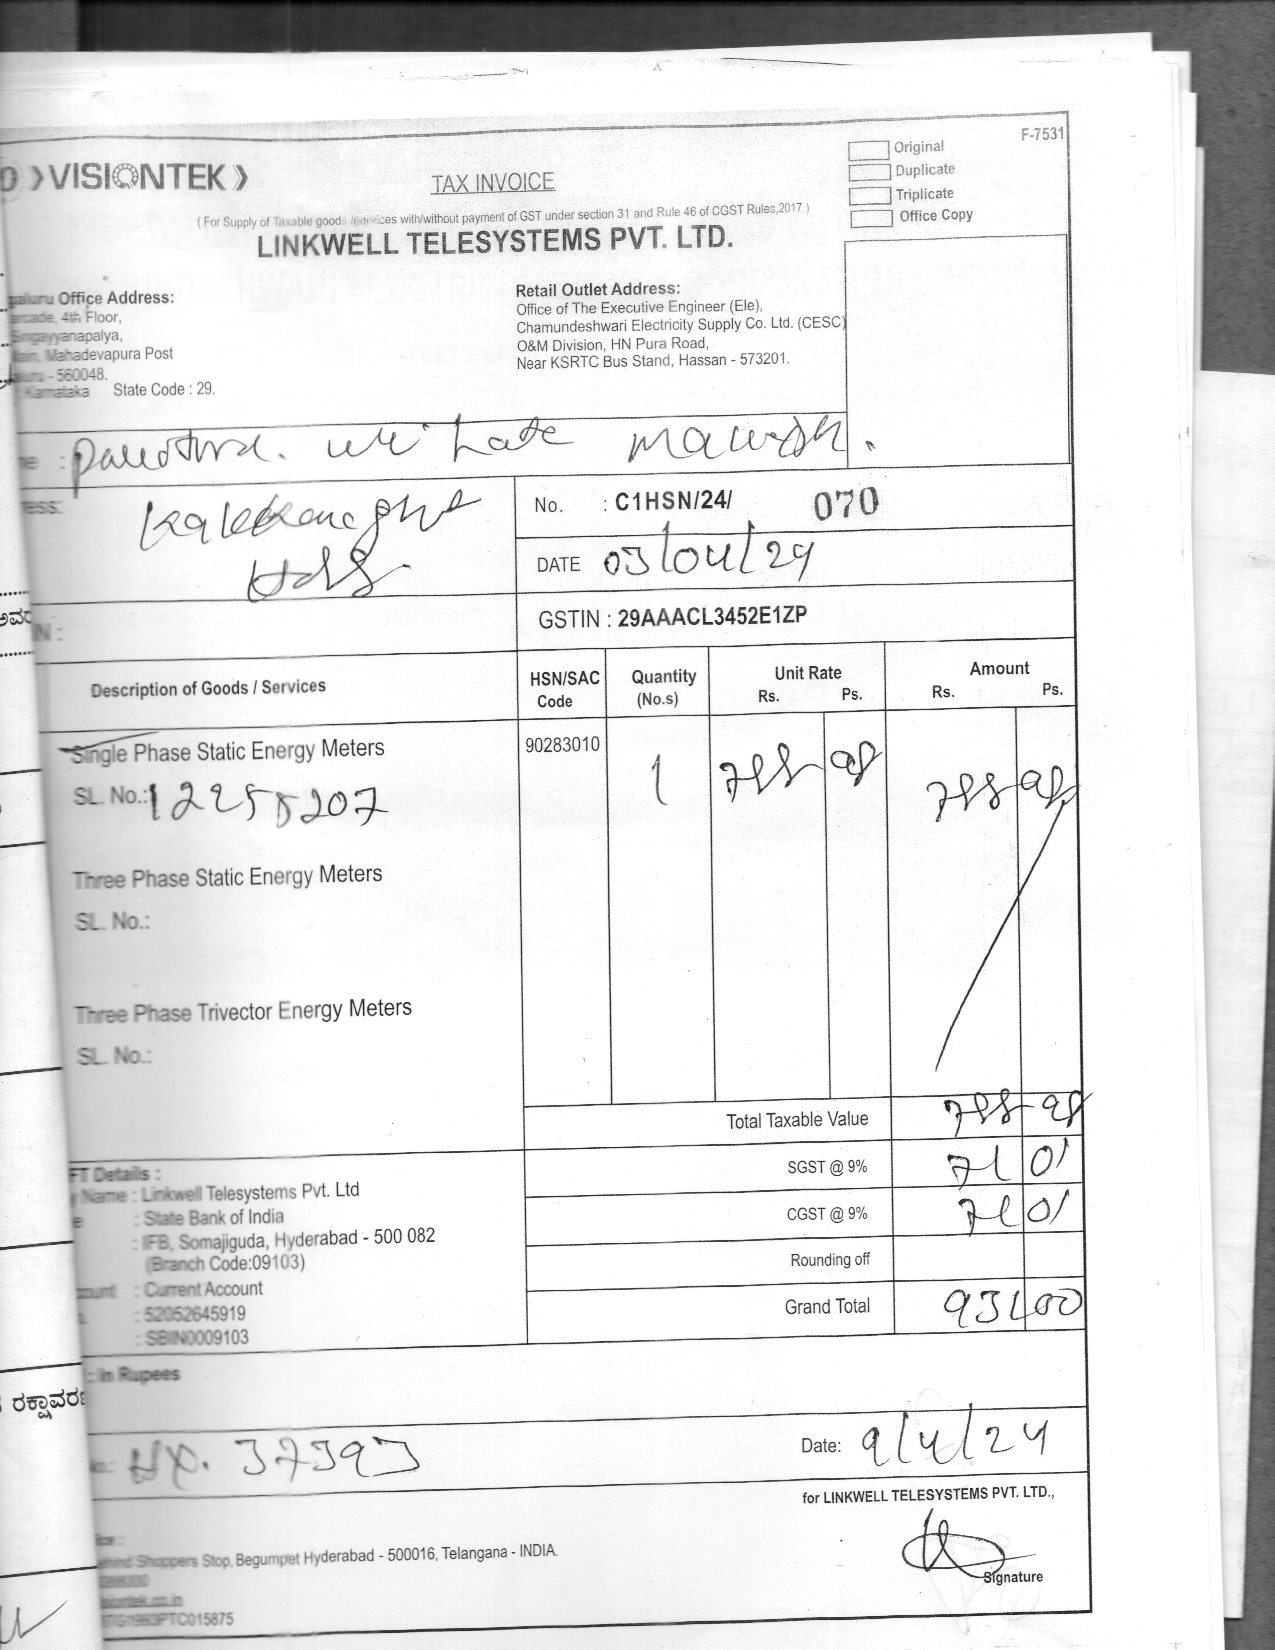 F-7531
Original
Duplicate
Triplicate
Office Copy
VISIONTEK
TAX INVOICE
( For Supply of Taxable goods /services with/without payment of GST under section 31 and Rule 46 of CGST Rules,2017 )
LINKWELL TELESYSTEMS PVT. LTD.
Office Address:
4th Floor,
Singayyanapalya,
Mahadevapura Post
- 560048.
Karnataka State Code : 29.
Retail Outlet Address:
Office of The Executive Engineer (Ele),
Chamundeshwari Electricity Supply Co. Ltd. (CESC)
O&M Division, HN Pura Road,
Near KSRTC Bus Stand, Hassan - 573201.
Late
No. : C1HSN/24/ 070
DATE 03/04/24
GSTIN : 29AAACL3452E1ZP
Description of Goods / Services
HSN/SAC Code
Quantity (No.s)
Unit Rate Rs. Ps.
Amount Rs. Ps.
Single Phase Static Energy Meters 90283010 1
SL. No.:
Three Phase Static Energy Meters
SL. No.:
Three Phase Trivector Energy Meters
SL. No.:
Total Taxable Value
SGST @ 9% 71 01
CGST @ 9% 71 01
Rounding off
Grand Total 931 00
FT Details :
Name : Linkwell Telesystems Pvt. Ltd
: State Bank of India
: IFB, Somajiguda, Hyderabad - 500 082
(Branch Code:09103)
: Current Account
: 52052645919
: SBIN0009103
: In Rupees
37393
Date: 9/4/24
for LINKWELL TELESYSTEMS PVT. LTD.,
Signature
Shoppers Stop, Begumpet Hyderabad - 500016, Telangana - INDIA.
ರಕ್ಷಾವರಣ